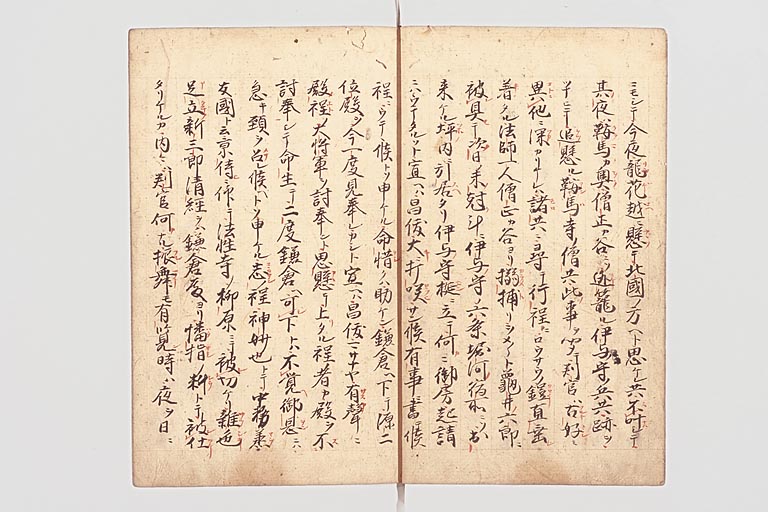 ニモシテ今夜龍花越ニ懸テ北國ノ方ヘト思ケレ共不叶シテ
其夜ハ鞍馬ノ奥僧正カ谷ニソ逃籠ル伊与守ノ兵共跡ヲ
追懸ル鞍馬寺ノ僧共此事ヲ聞テ判官ハ古好ミ
異他ニ深カリケレハ諸共ニ尋テ行程ニ鎧直垂
着タル法師一人僧正カ谷ヨリ搦捕リシメート龜井六郎ニ
被具テ次日未冠斗ニ伊与守ノ六条堀河宿所ニ
来ル坪内ニ引居タリ伊与守梃ニ立テ何ニ御房起請
ニハウテタルソト宣ヘハ昌俊大ニ打咲サン候有事ニ書テ候
程ニウテヽ候トソ申ケル命惜クハ助ケン鎌倉ヘ下テ源二
位殿ヲ今一度見奉レカシト宣ヘハ昌俊ニサヤ有聲ニ
殿程ノ大将軍ヲ討奉ント思懸テ上タル程者カ殿ヲ不
討奉シテ命生テ二度鎌倉ヘ可下トハ不覚御恩ニハ
急キ頚ヲ召候ヘトソ申ケル志ノ程神妙也トテ中務丞
友國ト云京侍ニ仰テ法性寺ノ柳原ニテ被切ケリ雜色
足立新三郎清経ヲハ鎌倉殿ヨリ幡指ノ料トテ被仕
タリケルカ内々ハ判官何ナル振舞モ有覧時ハ夜ヲ日ニ